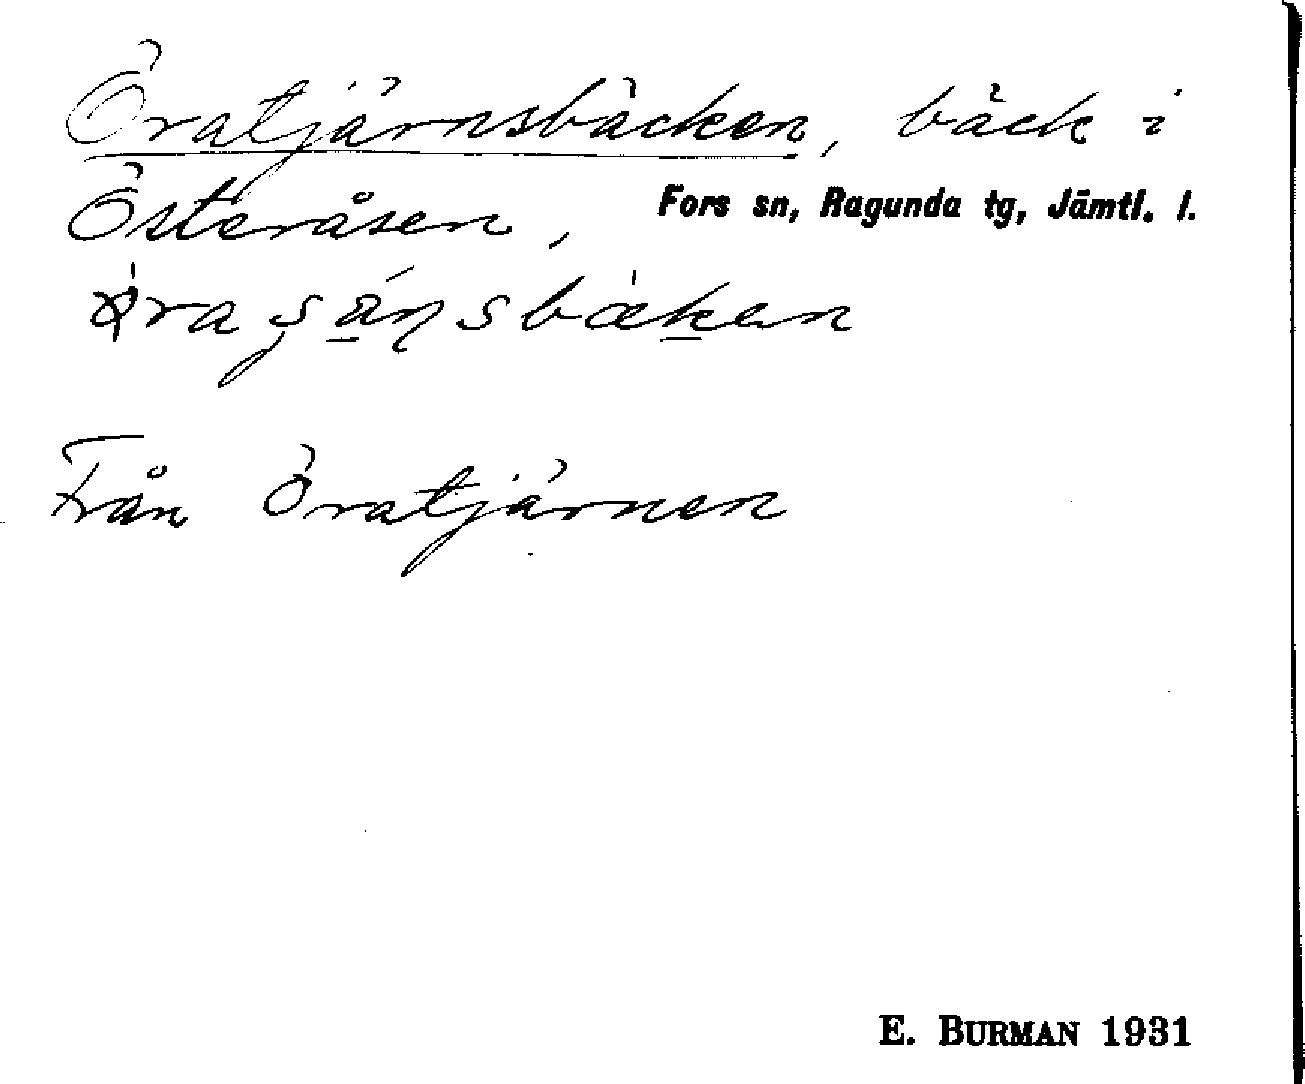 Öratjärnsbäcken, bäck i
Österåsen, Fors sn, Ragunda tg, Jämtl. l.
Från Öratjärnen
E. BURMAN 1931